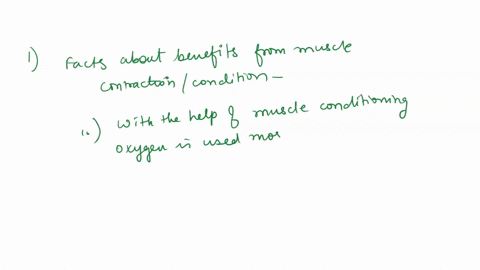 1) Facts about benefits from muscle
contraction/condition -
i.) With the help of muscle conditioning
oxygen is used mor